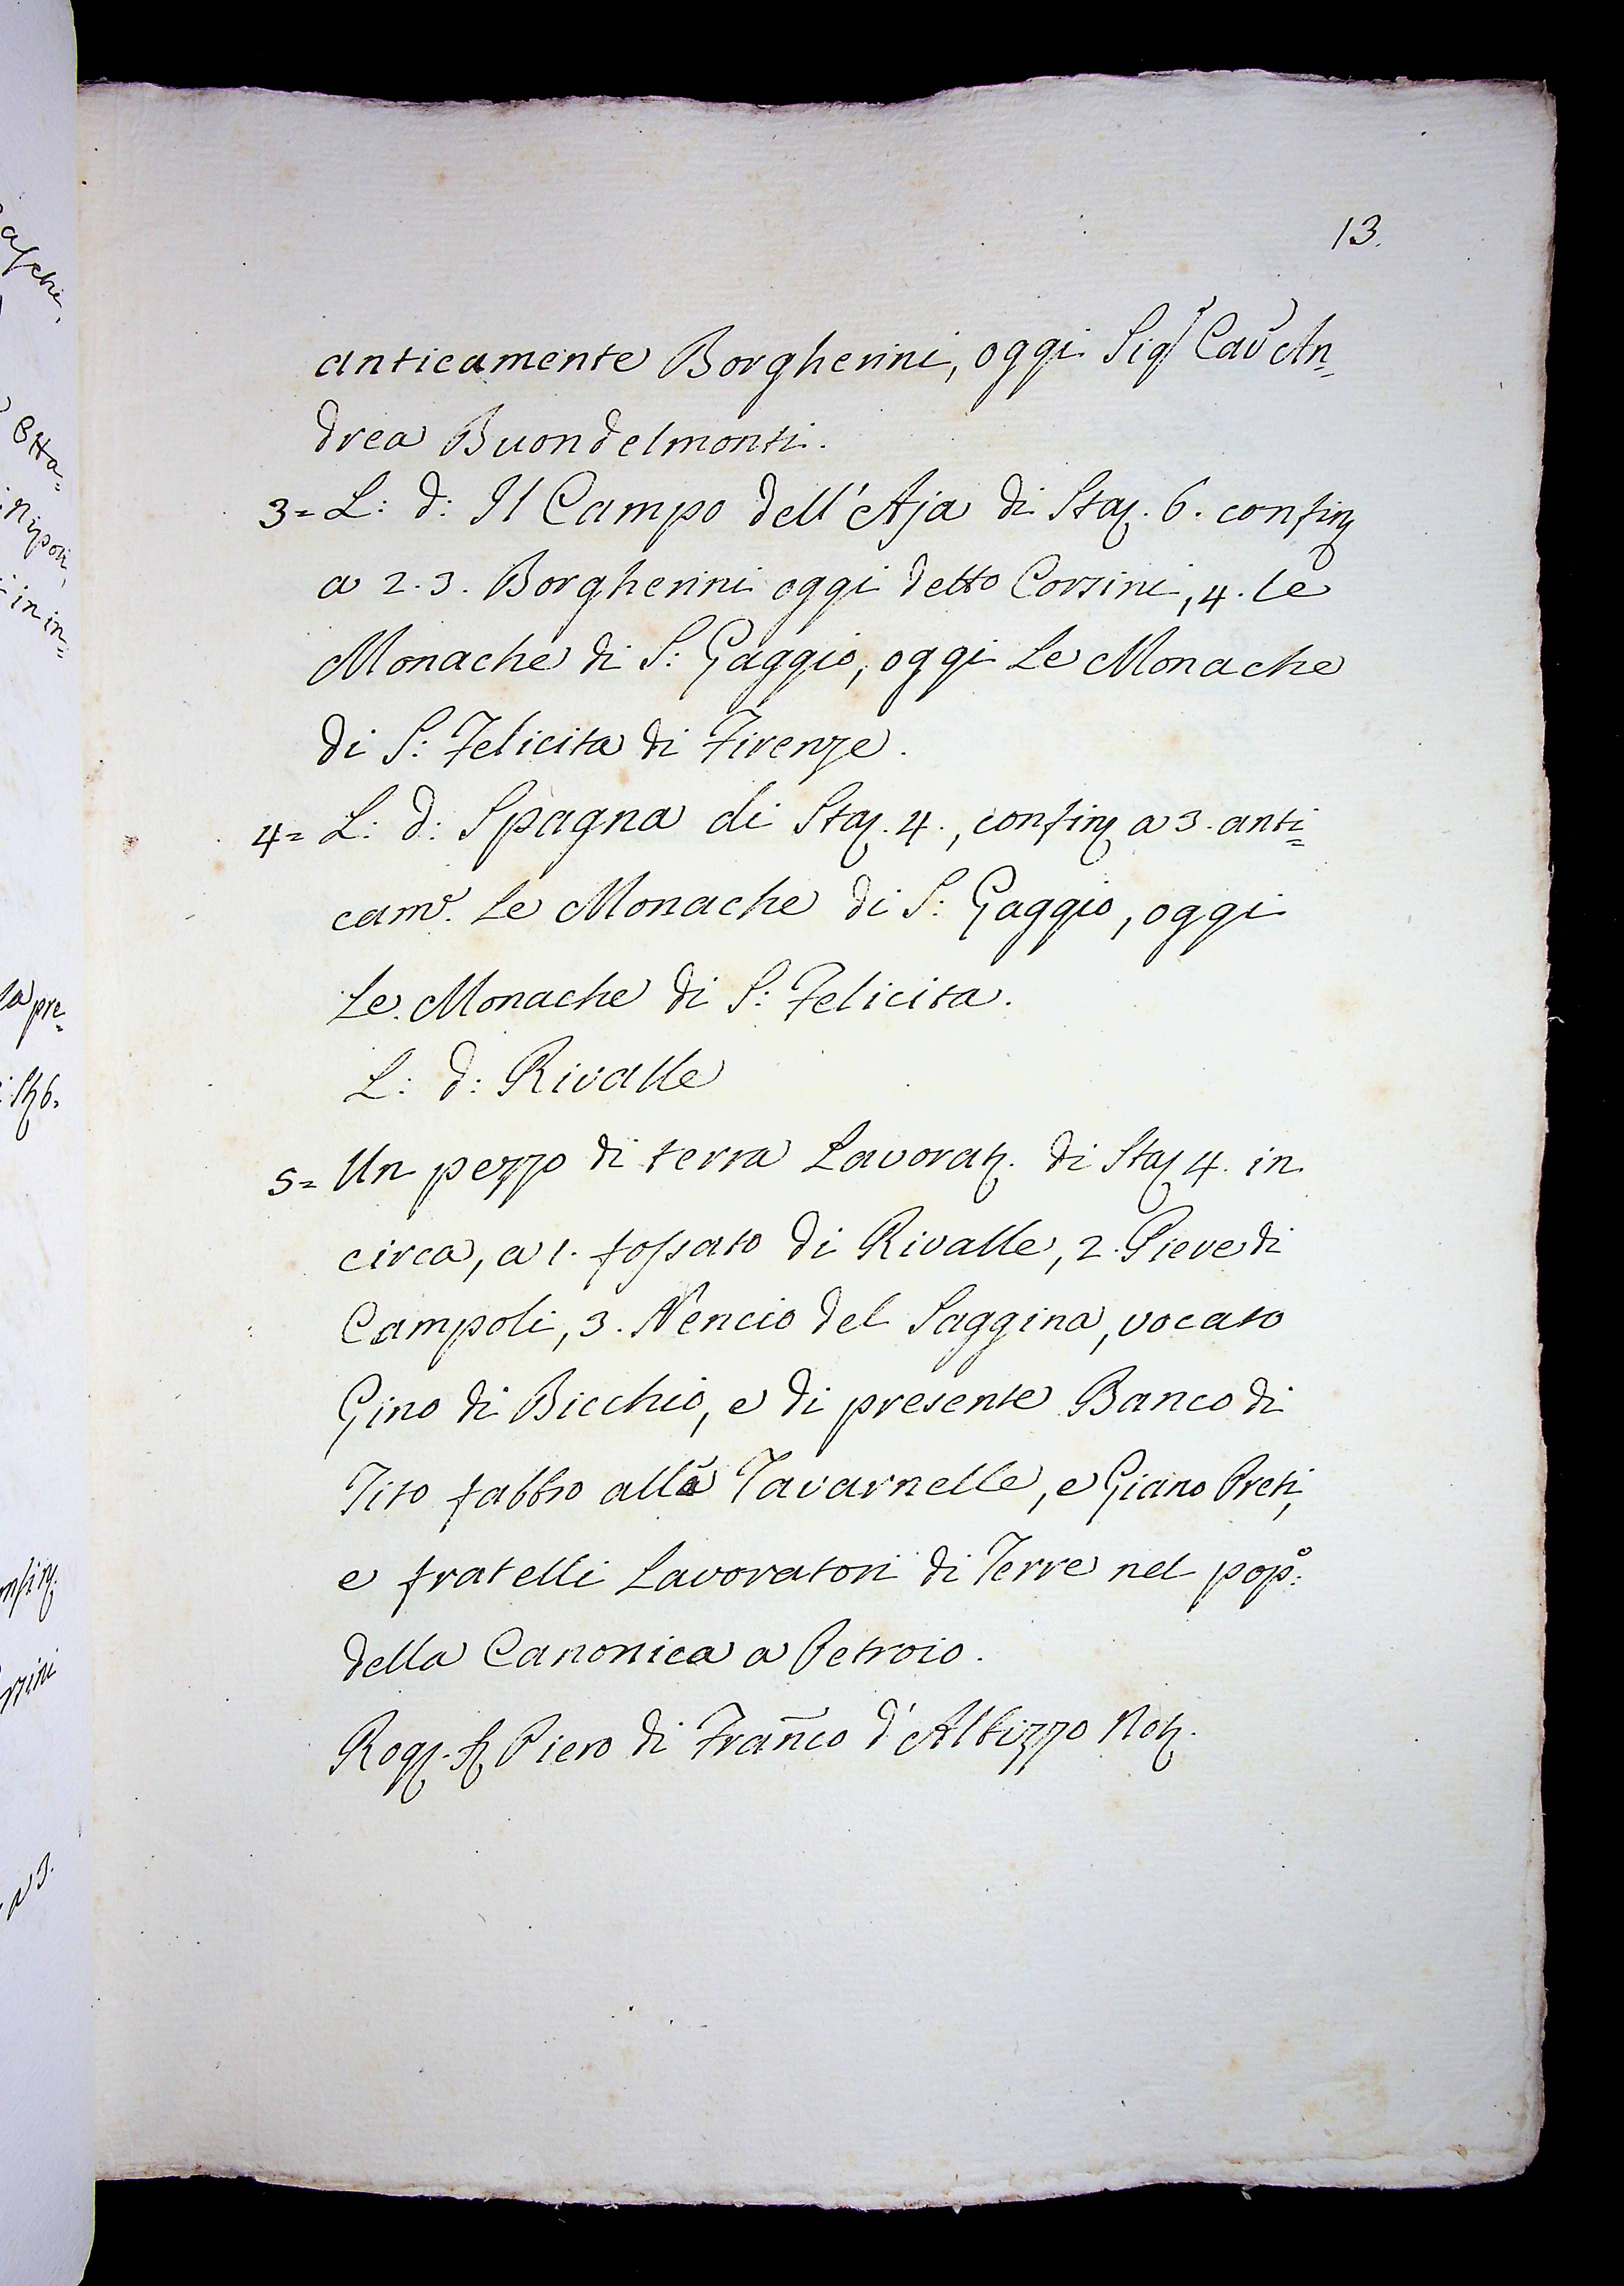 13.
anticamente Borgherini, oggi Sig.r Cav.r An=
drea Buondelmonti.
3= L: d: Il Campo dell'Aja di Staj. 6. confin.
a 2. 3. Borgherini oggi detto Corsini, 4. le
Monache di S: Gaggio, oggi Le Monache
di S: Felicita di Firenze.
4= L: d: Spagna di Staj. 4., confin. a 3. anti=
cam.e Le Monache di S: Gaggio, oggi
Le Monache di S: Felicita.
L: d: Rivalle
5= Un pezzo di terra Lavorat. di Staj. 4. in
circa, a 1. fossato di Rivalle, 2. Pieve di
Campoli, 3. Nencio del Saggina, vocato
Gino di Bicchio, e di presente Banco di
Tito fabbro alla Tavarnelle, e Giano Preti,
e fratelli Lavoratori di Terre nel pop.o:
della Canonica a Petroio.
Rog. S. Piero di Fran̄co d'Albizzo Not.